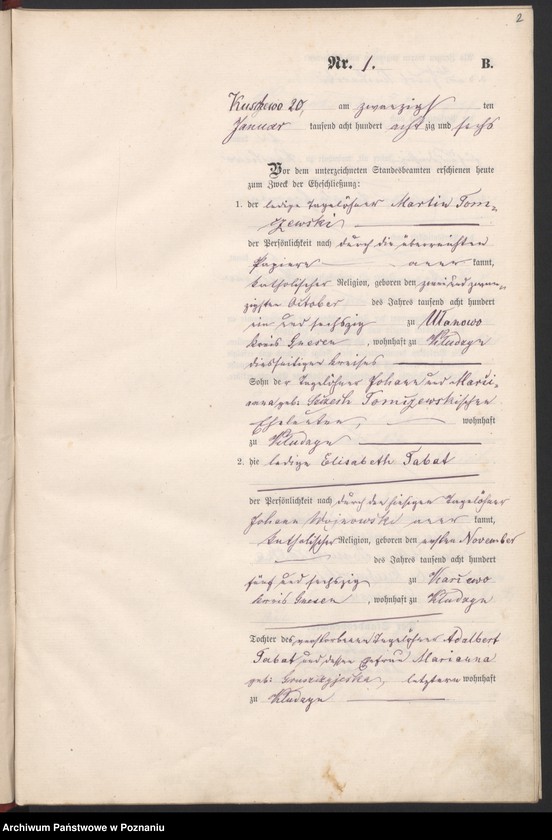 2
Nr. 1. B.
Kuszewo 20, am zwanzigsten
Januar tausend acht hundert achtzig und sechs
Vor dem unterzeichneten Standesbeamten erschienen heute
zum Zweck der Eheschließung:
1. der ledige Tagelöhner Martin Tom-
izewski
der Persönlichkeit nach durch die überreichten
Papiere aner kannt,
katholischer Religion, geboren den zwei und zwan-
zigsten October des Jahres tausend acht hundert
ein und sechszig zu Ulanowo
Kreis Gnesen, wohnhaft zu
diesseitigen Kreises
Sohn der Tagelöhner Johann und Mari-
anna geb: Tomizewskischen
Eheleuten, wohnhaft
zu
2. die ledige Elisabeth Tabat
der Persönlichkeit nach durch den hiesigen Tagelöhner
Johann Wojnowski aner kannt,
katholischer Religion, geboren den ersten November
des Jahres tausend acht hundert
fünf und sechszig zu
Kreis Gnesen, wohnhaft zu
Tochter des verstorbenen Tagelöhner Adalbert
Tabat und dessen Ehefrau Marianna
geb: letztere wohnhaft
zu
Archiwum Państwowe w Poznaniu